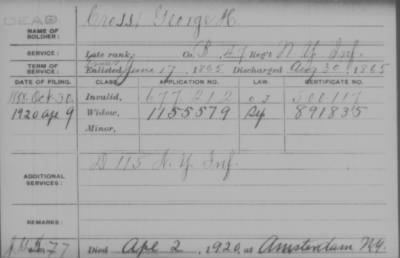 DEAD
NAME OF SOLDIER: Cross, George H.
SERVICE: Late rank, Co. B, 47 Reg't N. Y. Inf.
TERM OF SERVICE: Enlisted June 17, 1865 Discharged Aug 30, 1865
DATE OF FILING. CLASS. APPLICATION NO. LAW. CERTIFICATE NO.
1888 Oct. 30. Invalid, 677,212 500117
1920 Apr 9 Widow, 1155579 891835
Minor,
ADDITIONAL SERVICES: D 115 N. Y. Inf.
REMARKS:
77 Died Apl 2, 1920, at Amsterdam N.Y.